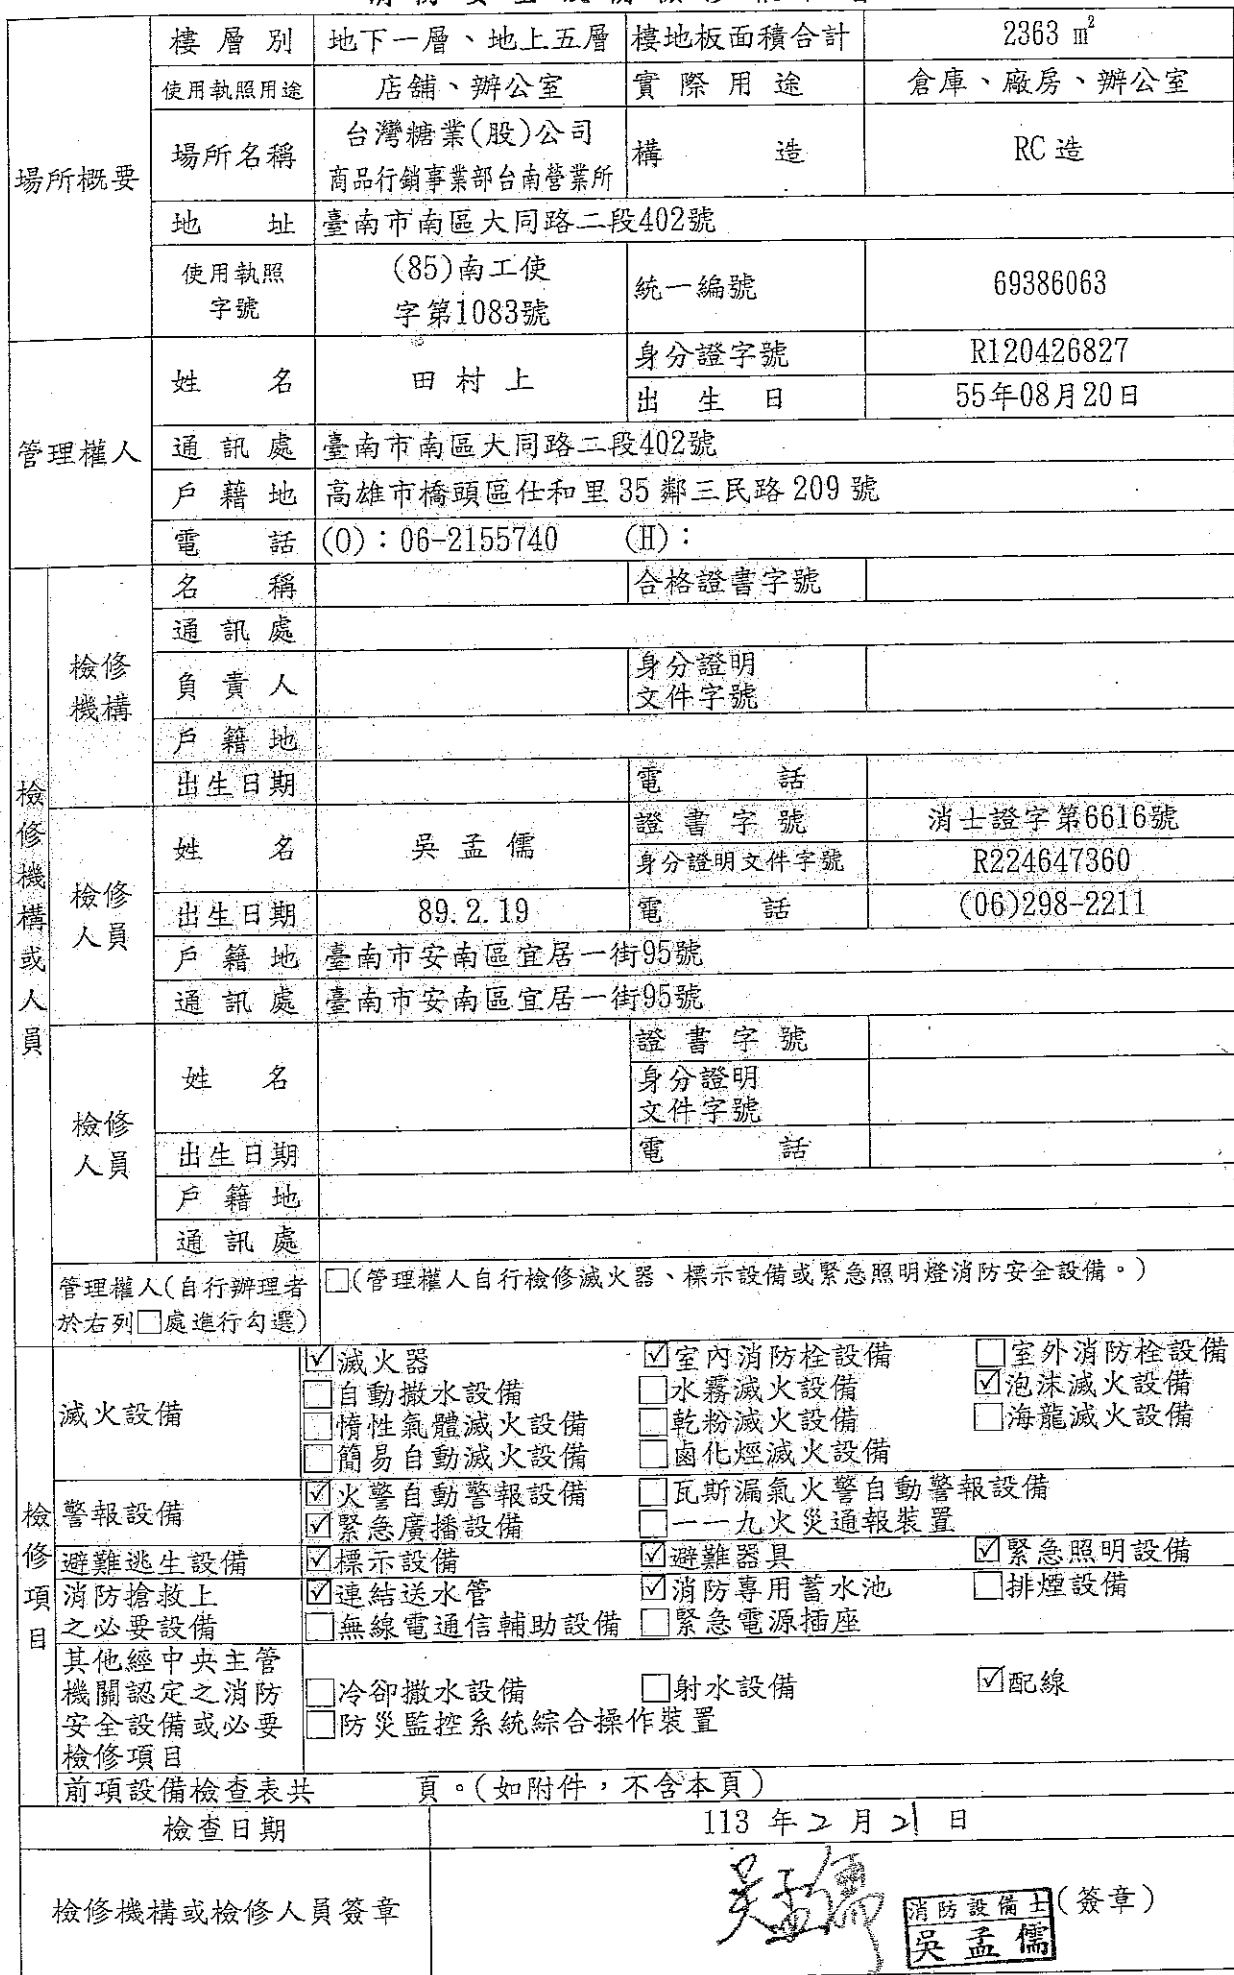 場所概要
樓層別 地下一層、地上五層 樓地板面積合計 2363 ㎡
使用執照用途 店舖、辦公室 實際用途 倉庫、廠房、辦公室
場所名稱 台灣糖業(股)公司 構造 RC 造
商品行銷事業部台南營業所
地址 臺南市南區大同路二段402號
使用執照 (85)南工使 統一編號 69386063
字號 字第1083號
管理權人
姓名 田村上 身分證字號 R120426827
出生日 55年08月20日
通訊處 臺南市南區大同路二段402號
戶籍地 高雄市橋頭區仕和里 35 鄰三民路 209 號
電話 (O)：06-2155740 (H)：
檢修機構或人員
檢修機構
名稱 合格證書字號
通訊處
負責人 身分證明
文件字號
戶籍地
出生日期 電話
檢修人員
姓名 吳孟儒 證書字號 消士證字第6616號
身分證明文件字號 R224647360
出生日期 89.2.19 電話 (06)298-2211
戶籍地 臺南市安南區宜居一街95號
通訊處 臺南市安南區宜居一街95號
檢修人員
姓名 證書字號
身分證明
文件字號
出生日期 電話
戶籍地
通訊處
管理權人(自行辦理者 □(管理權人自行檢修滅火器、標示設備或緊急照明燈消防安全設備。)
於右列□處進行勾選)
檢修項目
滅火設備
☑滅火器 ☑室內消防栓設備 □室外消防栓設備
□自動撒水設備 □水霧滅火設備 ☑泡沫滅火設備
□惰性氣體滅火設備 □乾粉滅火設備 □海龍滅火設備
□簡易自動滅火設備 □鹵化烴滅火設備
警報設備
☑火警自動警報設備 □瓦斯漏氣火警自動警報設備
☑緊急廣播設備 □一一九火災通報裝置
避難逃生設備 ☑標示設備 ☑避難器具 ☑緊急照明設備
消防搶救上 ☑連結送水管 ☑消防專用蓄水池 □排煙設備
之必要設備 □無線電通信輔助設備 □緊急電源插座
其他經中央主管
機關認定之消防 □冷卻撒水設備 □射水設備 ☑配線
安全設備或必要 □防災監控系統綜合操作裝置
檢修項目
前項設備檢查表共 頁。(如附件，不含本頁)
檢查日期 113 年 2 月 21 日
檢修機構或檢修人員簽章 吳孟儒 (簽章)
消防設備士
吳孟儒